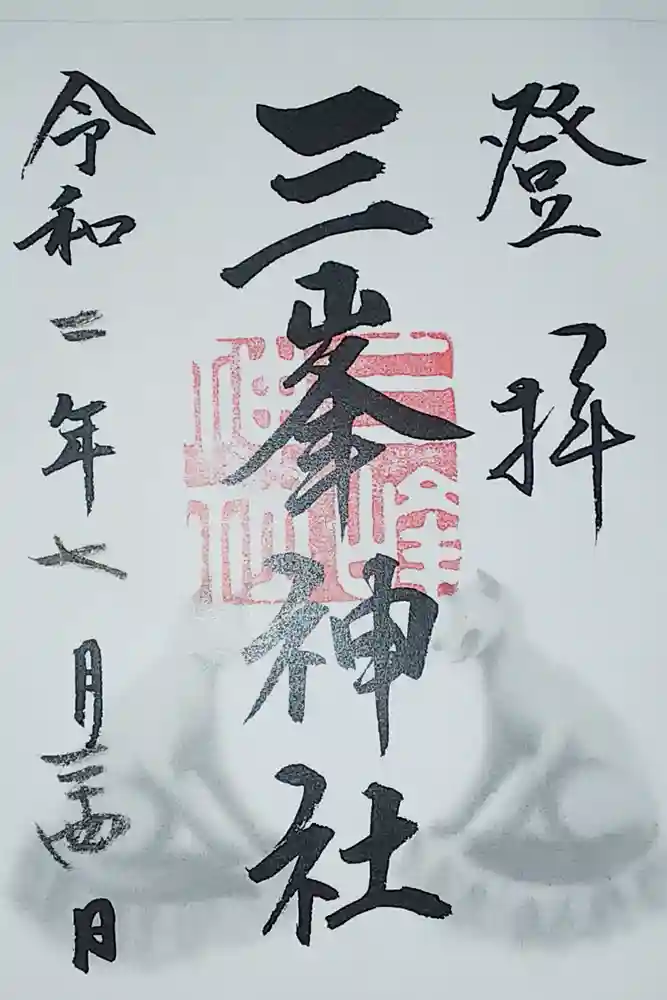 登拝
三峯神社
三峰神社
令和二年七月二十四日